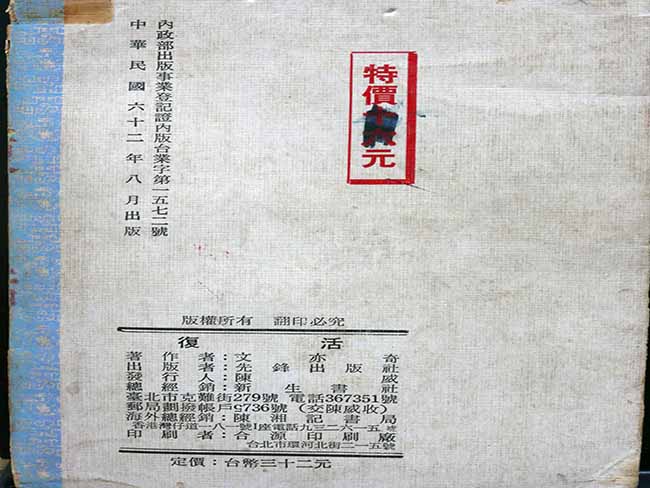 內政部出版事業登記證內版台業字第一五七二號
中華民國六十二年八月出版
特價
元
版權所有 翻印必究
復活
著作者：文亦奇
出版者：先鋒出版社
發行人：陳威
總經銷：新生書社
臺北市克難街279號 電話367351號
郵局劃撥帳戶G736號（交陳威收）
海外總經銷：陳湘記書局
香港灣仔道一八一號I座電話九三二六一五
印刷者：合源印刷廠
台北市環河北街二一五號
定價：台幣三十二元